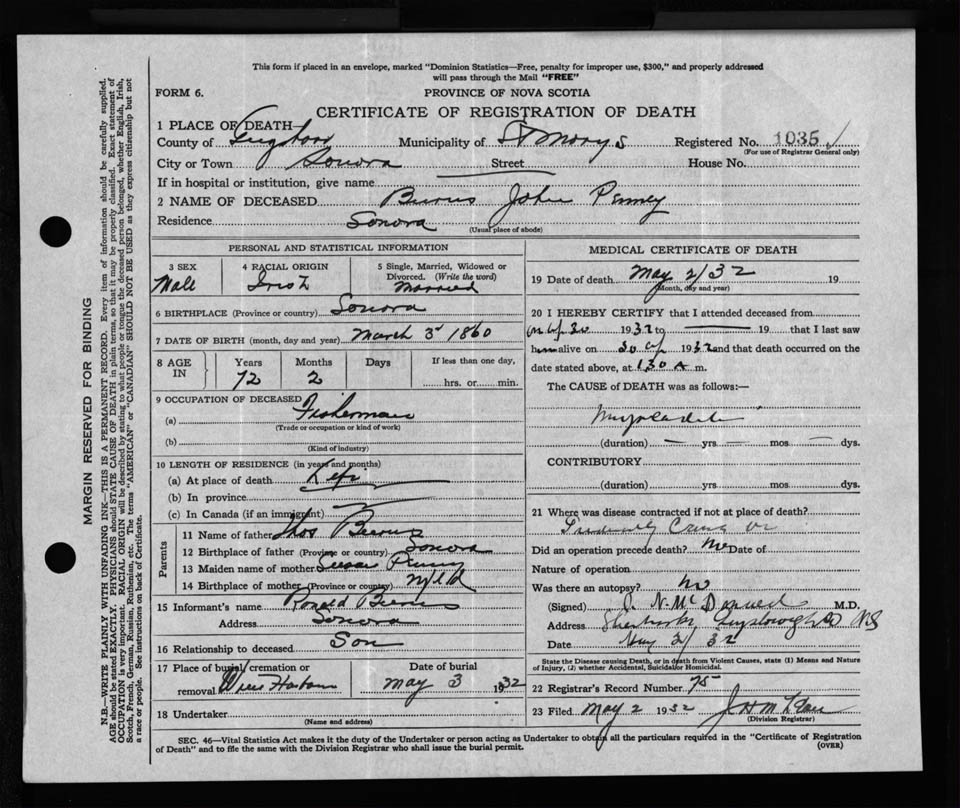 This form if placed in an envelope, marked "Dominion Statistics—Free, penalty for improper use, $300," and properly addressed
will pass through the Mail "FREE"
FORM 6. PROVINCE OF NOVA SCOTIA
CERTIFICATE OF REGISTRATION OF DEATH
1 PLACE OF DEATH
County of Municipality of St Marys Registered No. 1035
(For use of Registrar General only)
City or Town Sonora Street House No.
If in hospital or institution, give name
2 NAME OF DECEASED Burns John Penney
Residence Sonora
(Usual place of abode)
PERSONAL AND STATISTICAL INFORMATION
3 SEX 4 RACIAL ORIGIN 5 Single, Married, Widowed or
Divorced. (Write the word)
Male Irish Married
6 BIRTHPLACE (Province or country) Sonora
7 DATE OF BIRTH (month, day and year) March 3 1860
8 AGE IN Years Months Days If less than one day,
72 2 hrs. or min.
9 OCCUPATION OF DECEASED
(a) Fisherman
(Trade or occupation or kind of work)
(b)
(Kind of industry)
10 LENGTH OF RESIDENCE (in years and months)
(a) At place of death Life
(b) In province
(c) In Canada (if an immigrant)
Parents
11 Name of father Thos Burns
12 Birthplace of father (Province or country) Sonora
13 Maiden name of mother Susan Penney
14 Birthplace of mother (Province or country) Nfld
15 Informant's name Ronald Burns
Address Sonora
16 Relationship to deceased Son
17 Place of burial, cremation or Date of burial
removal Wine Harbour May 3 1932
18 Undertaker
(Name and address)
MEDICAL CERTIFICATE OF DEATH
19 Date of death May 2/32 19
(Month, day and year)
20 I HEREBY CERTIFY that I attended deceased from
30 1932 to 19 that I last saw
him alive on 30 1932 and that death occurred on the
date stated above, at 1.30 A m.
The CAUSE of DEATH was as follows:—
(duration) yrs mos dys.
CONTRIBUTORY
(duration) yrs mos dys.
21 Where was disease contracted if not at place of death?
Did an operation precede death? No Date of
Nature of operation
Was there an autopsy? No
(Signed) M.D.
Address NS
Date May 2/32
State the Disease causing Death, or in death from Violent Causes, state (1) Means and Nature
of Injury, (2) whether Accidental, Suicidal or Homicidal.
22 Registrar's Record Number 75
23 Filed May 2 1932
(Division Registrar)
SEC. 46—Vital Statistics Act makes it the duty of the Undertaker or person acting as Undertaker to obtain all the particulars required in the "Certificate of Registration
of Death" and to file the same with the Division Registrar who shall issue the burial permit. (OVER)
MARGIN RESERVED FOR BINDING
N.B.—WRITE PLAINLY WITH UNFADING INK—THIS IS A PERMANENT RECORD. Every item of information should be carefully supplied.
AGE should be stated EXACTLY. PHYSICIANS should STATE CAUSE OF DEATH in plain terms, so that it may be properly classified. Exact statement of
OCCUPATION is very important. RACIAL ORIGIN will be described by stating to what people or tongue the deceased person belonged, whether English, Irish,
Scotch, French, German, Russian, Ruthenian, etc. The terms "AMERICAN" or "CANADIAN" SHOULD NOT BE USED as they express citizenship but not
a race or people. See instructions on back of Certificate.